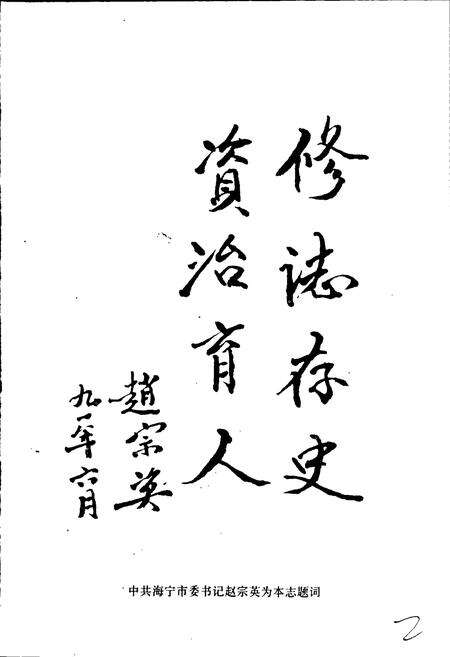 修誌存史
資治育人
趙宗英
九一年六月
中共海宁市委书记赵宗英为本志题词
2